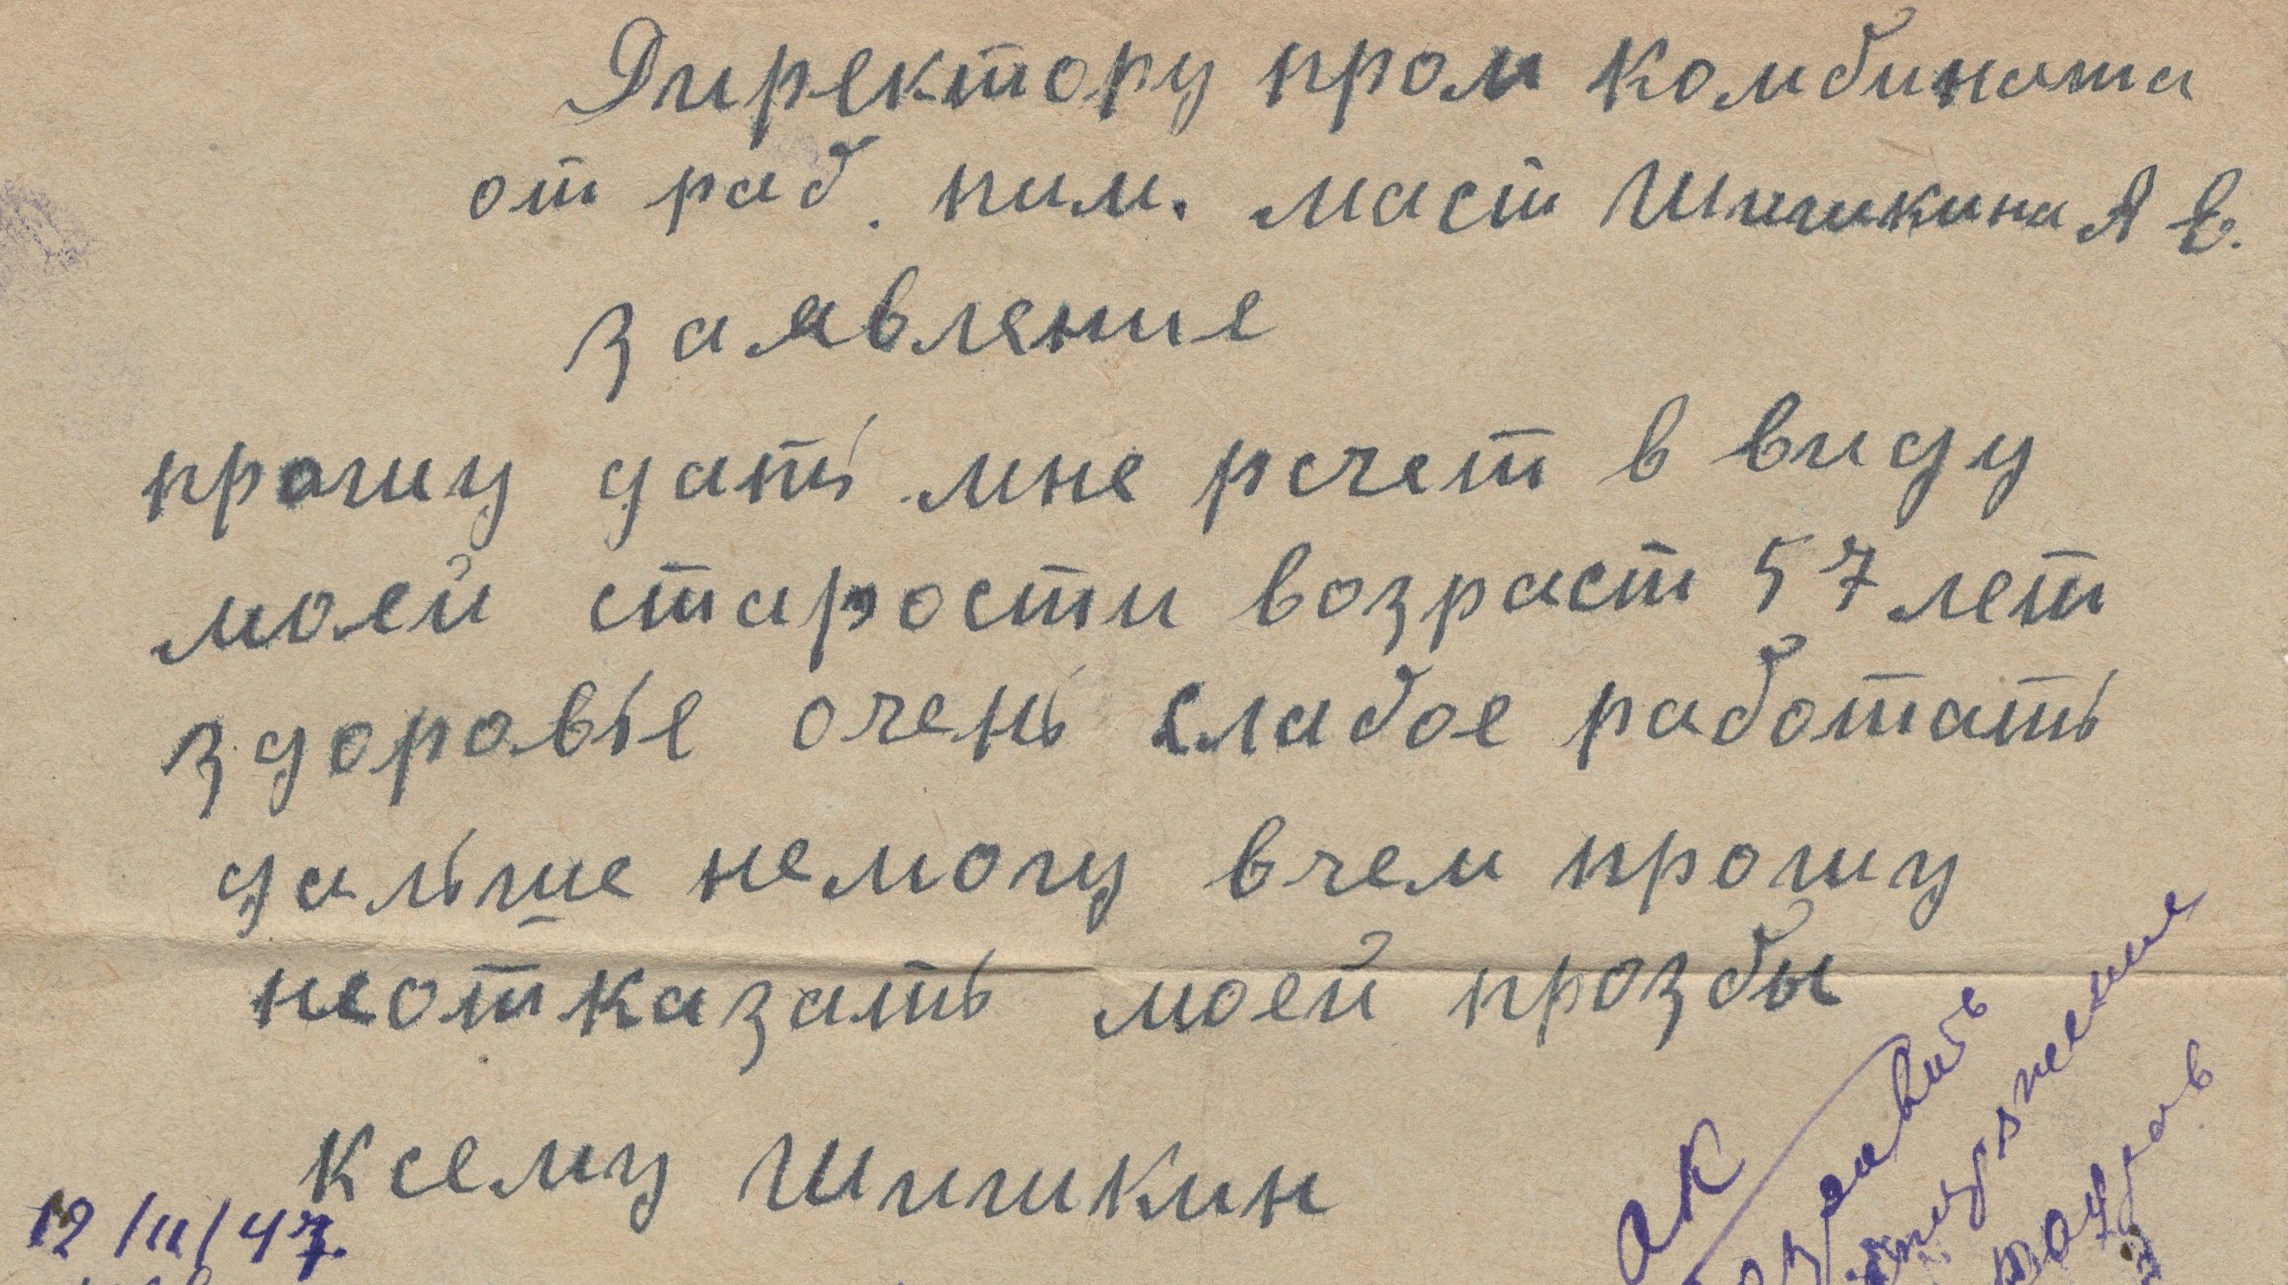 Директору пром комбината
от раб. пим. маст Шишкина А Е.
заявление
прошу дать мне рсчет в виду
моей старости возраст 57 лет
здоровье очень слабое работать
дальше немогу вчем прошу
неотказать моей прозбы
ксему Шишкин
12/II/47.
ок